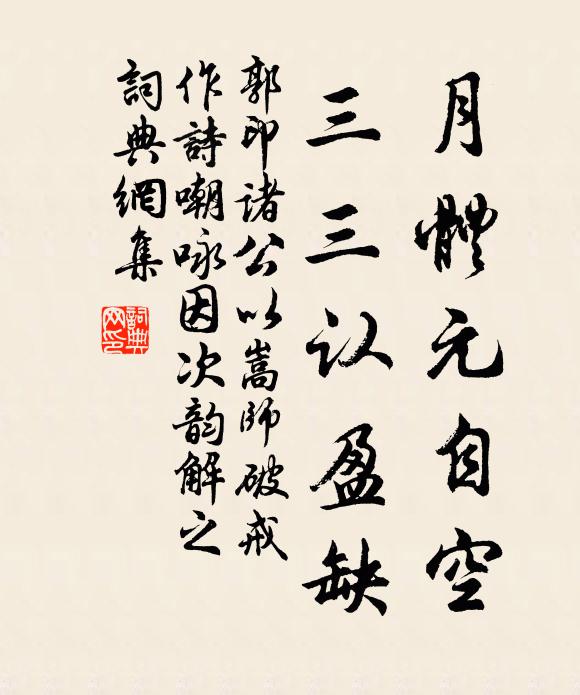 月體元自空
三三认盈缺
郭印諸公以嵩師破戒
作詩嘲咏因次韵解之
詞典網集
詞典网印